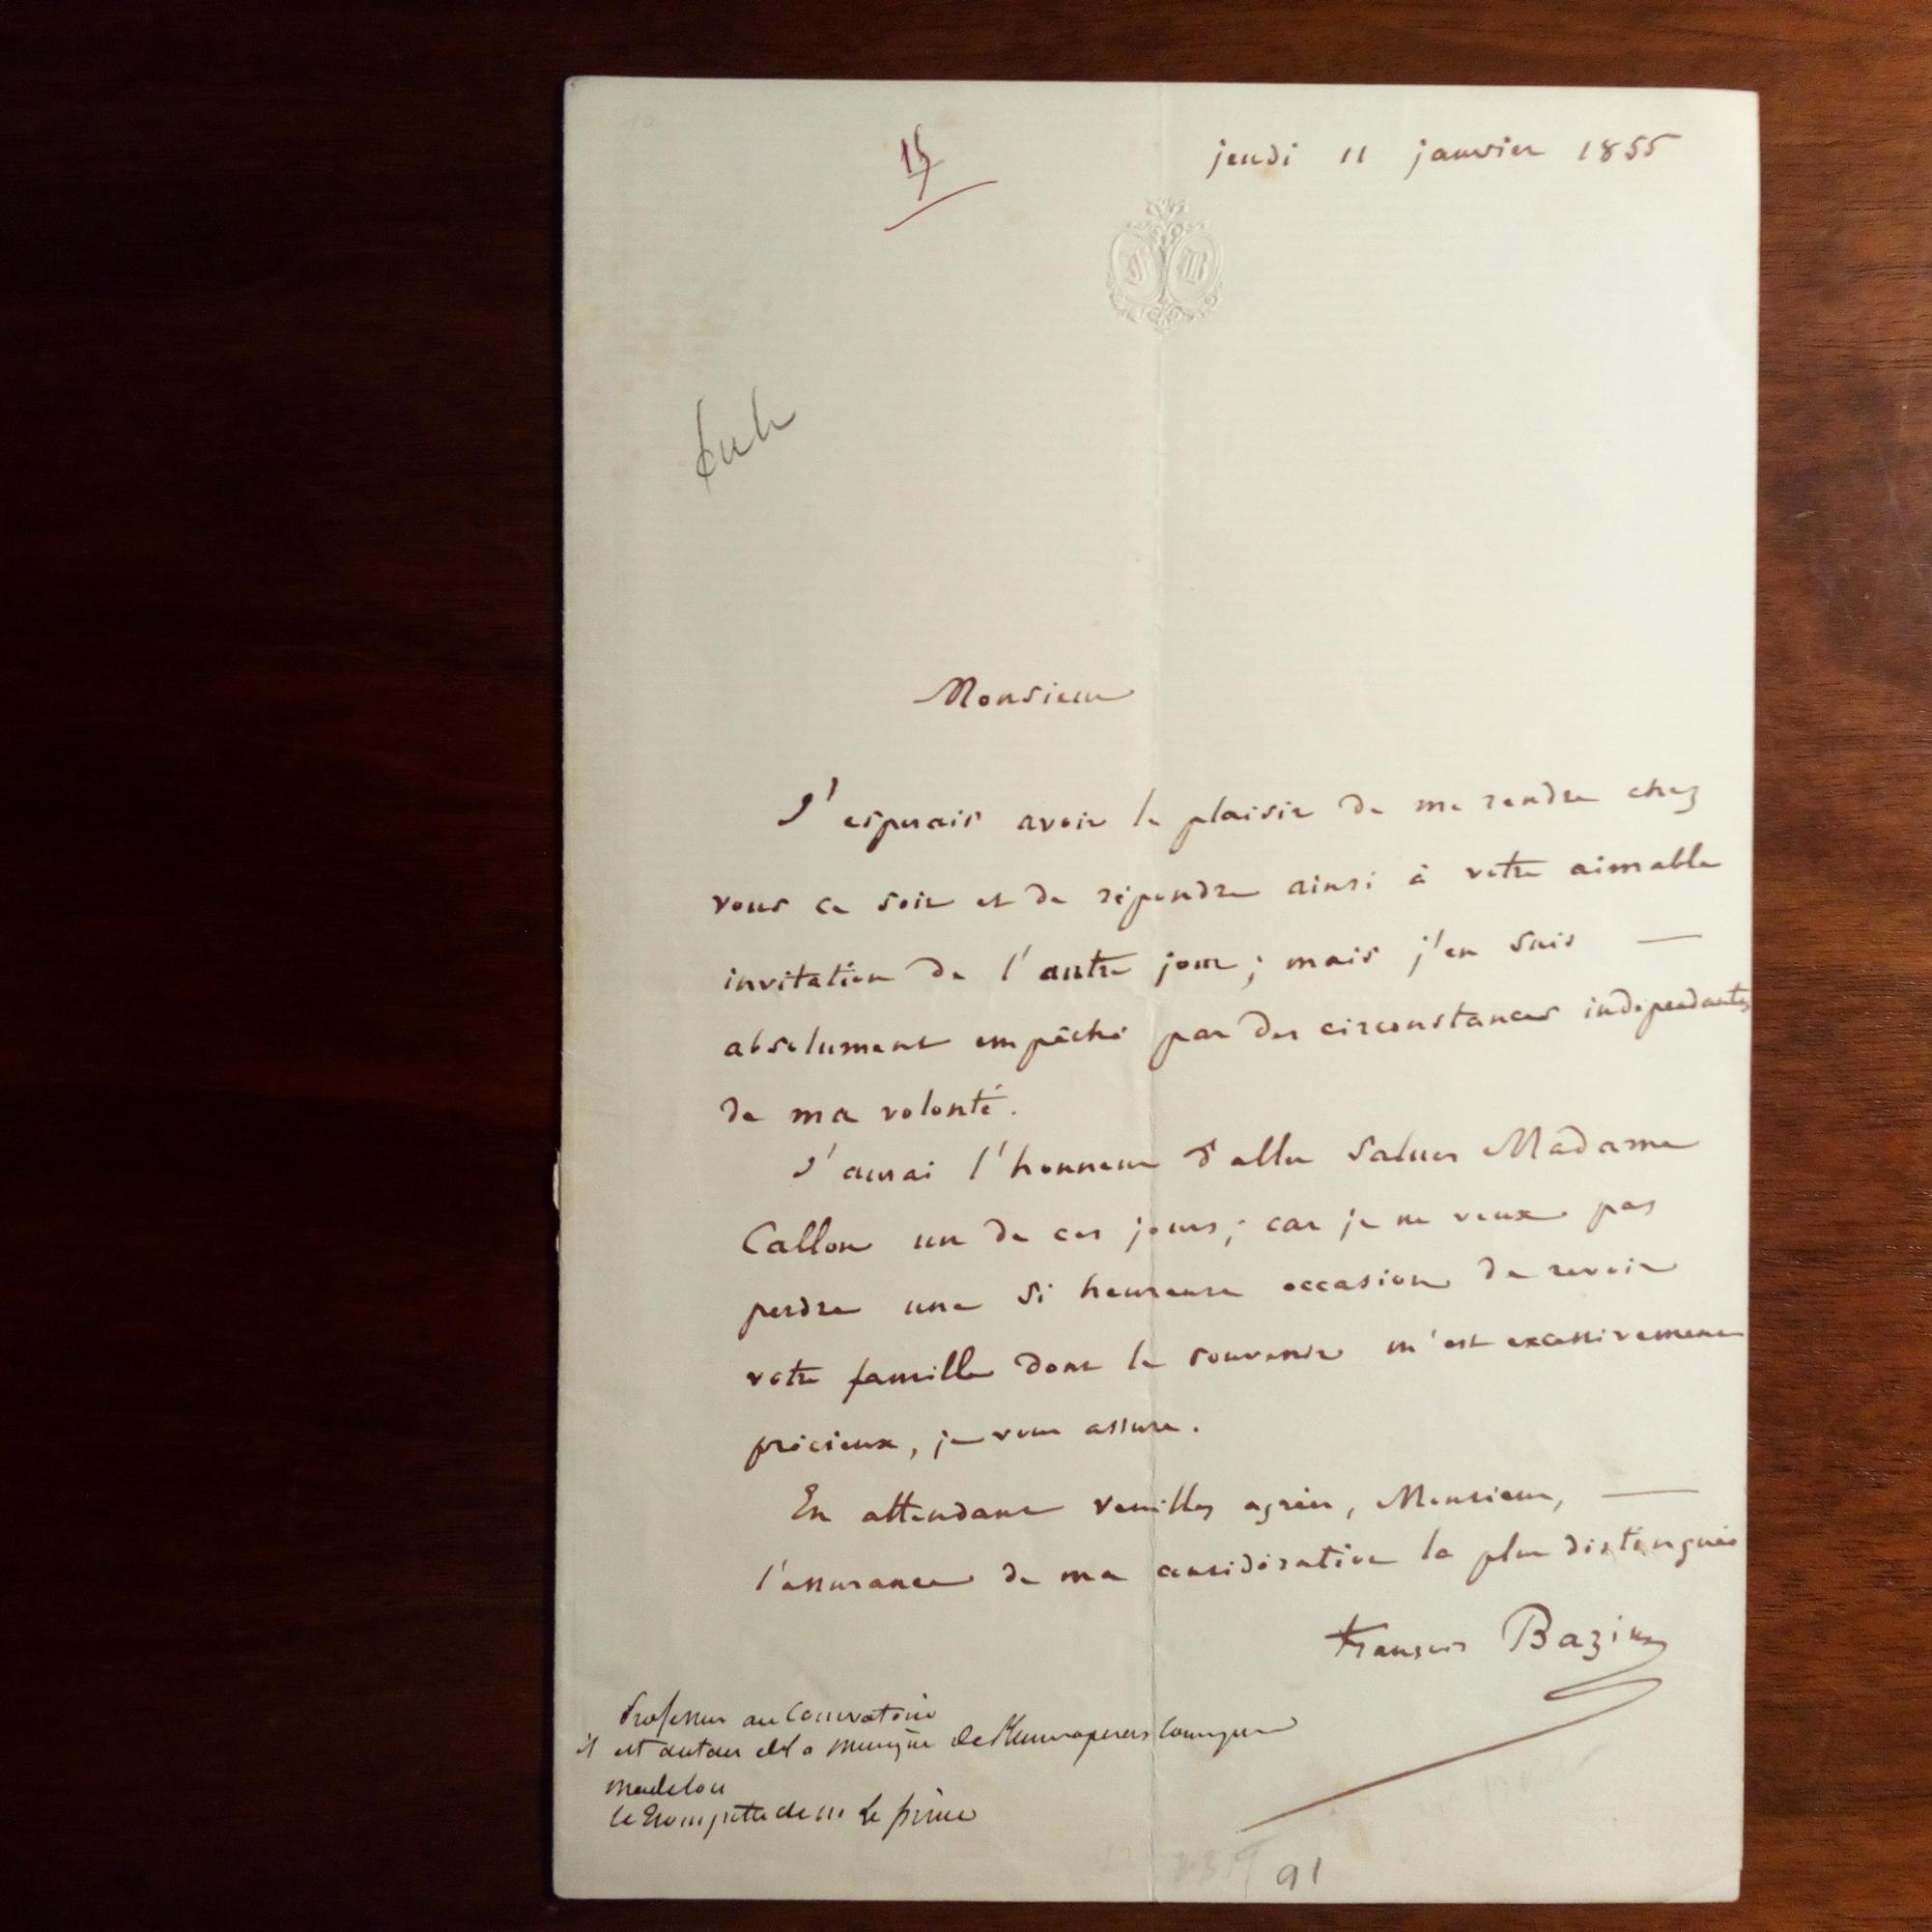 jeudi 11 janvier 1855
15
F B
Monsieur
J'esperais avoir le plaisir de me rendre chez
vous ce soir et de répondre ainsi à votre aimable
invitation de l'autre jour; mais j'en suis —
absolument empêché par des circonstances indépendantes
de ma volonté.
J'aurai l'honneur d'aller saluer Madame
Callon un de ces jours; car je ne veux pas
perdre une si heureuse occasion de revoir
votre famille dont le souvenir m'est excessivement
précieux, je vous assure.
En attendant veuillez agréer, Monsieur, —
l'assurance de ma considération la plus distinguée
François Bazin
Professeur au Conservatoire
il est auteur de la musique de opéras comiques
Madelon
le Trompette de M le prince
91